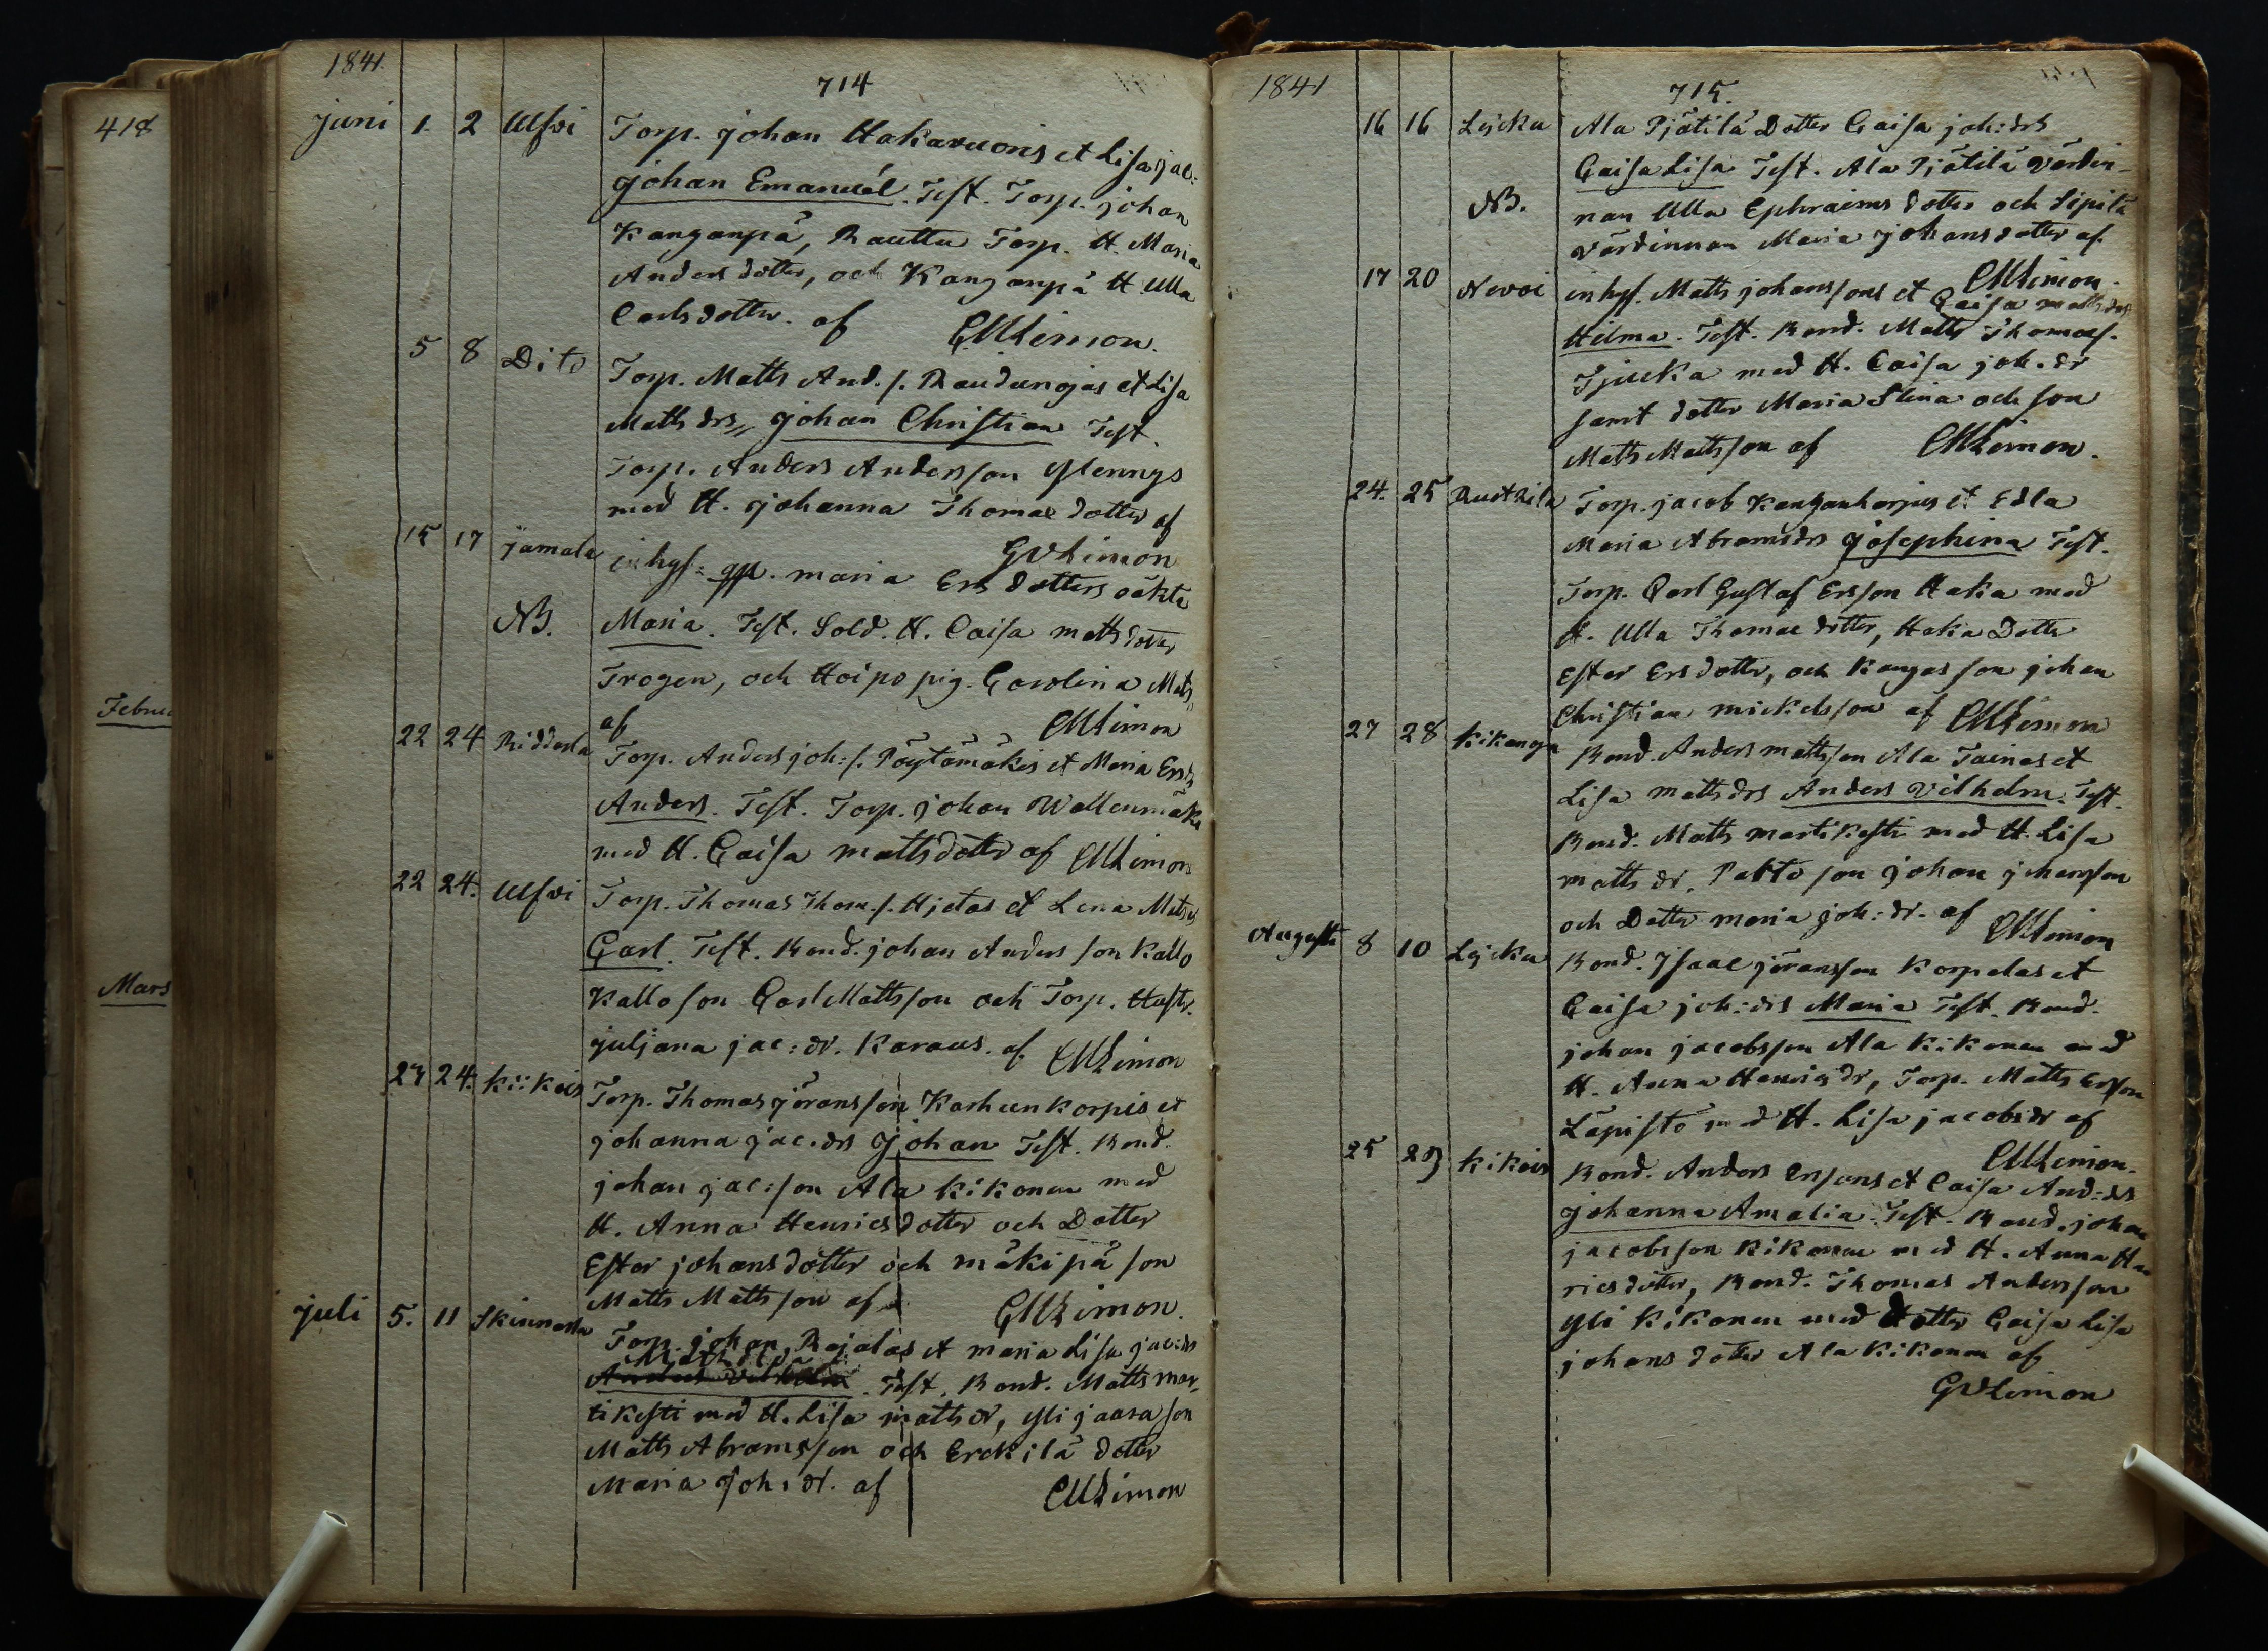 418
Febru
Mars
1841.
714
juni 1. 2 Ulfvi Torp. Johan Hakavuoris et Lisa Jac:
Johan Emanuel. Test. Torp. Johan
Kanganpä, Rauttu Torp. H. Maria
Andersdotter, och Kanganpä H. Ulla
Carlsdotter. af GVLimon.
5 8 Dito Torp. Matts And.s. Raudanojas et Lisa
Matts drs,, Johan Christian Test.
Torp. Anders Andersson Glennys
med H. Johanna Thomae dotter af
GVLimon
15 17 Jamala inhys: maria Ers dotters oäkta
NB. Maria. Test. Sold. H. Caisa mattsdotter
Trogen, och Hoipo pig. Carolina Matts
af GVLimon
22 24 Riddarla Torp. Anders Joh:s. Pöytämäkis et Maria Ersds
Anders. Test. Torp. Johan Wallenmäki
med H. Caisa mattsdotter af GVLimon
22 24. Ulfvi Torp. Thomas Thom.s. Hjetas et Lena Matsds
Carl. Test. Bond. Johan Andersson Kallo
Kallo son Carl Mattsson och Torp. Hustr.
Juljana Jac: dr. Karaus. af GVLimon
23 24. Kiikois Torp. Thomas Jöransson Karhunkorpis et
Johanna Jac. drs Johan Test. Bond.
Johan Jac:son Ala Kikonen med
H. Anna Henricsdotter och Dotter
Ester Johansdotter och mäkipä son
Matts Mattsson af GVLimon.
juli 5. 11 Skinnarla Torp. Johan Rajalas et maria Lisa Jac:drs
Mathilda
Anders Vilhelm. Test. Bond. Matts mar-
tikesti med H. Lisa matts dr, Yli Jaara son
Matts Abramsson och Erckilä dotter
Maria Joh: dr. af GVLimon
1841
715.
16 16 Lycku Ala Pjätilä Dotter Caisa Joh: drs
Caisa Lisa Test. Ala Pjätilä värdin-
NB. nan Ulla Ephraims dotter och Sipilä
värdinnan Maria Johansdotter af.
GVLimon.
17 20 Nevoi inhys. Matts Johanssons et Caisa mattsdrs
Hilma. Test. Bond. Matts Thomass.
Tjucka med H. Caisa Joh. dr
samt dotter Maria Stina och son
Matts Mattsson af GVLimon.
24. 25 Rautkila Torp. Jacob Kanganharjus et Edla
Maria Abramsdrs Josephina Test.
Torp. Carl Gustaf Ersson Haka med
H. Ulla Thomae dotter, Haka Dotter
Ester Ersdotter, och Kangas son Johan
Christian mickelsson af GVLimon
27 28 Kikangn Bond. Anders mattsson Ala Tainas et
Lisa matts drs Anders Vilhelm. Test.
Bond. Matts martikesti med H. Lisa
matts dr. Patto son Johan Johansson
och Dotter maria Joh: dr. af GVLimon
Augusti 8 10 Lycku Bond. Isaac Jöransson Korpelas et
Caisa Joh: drs Maria Test. Bond.
Johan Jacobsson Ala Kikonen med
H. Anna Henrics dr, Torp. Matts Ersson
Läpistö med H. Lisa Jacobs dr af
GVLimon.
25 29 Kikois Bond. Anders Erssons et Caisa And: drs
Johanna Amalia. Test. Bond. Johan
Jacobsson Kikonen med H. Anna Hen
ricsdotter, Bond. Thomas Andersson
Yli Kikonen med Dotter Caisa Lisa
Johans dotter Ala Kikonen af
GVLimon